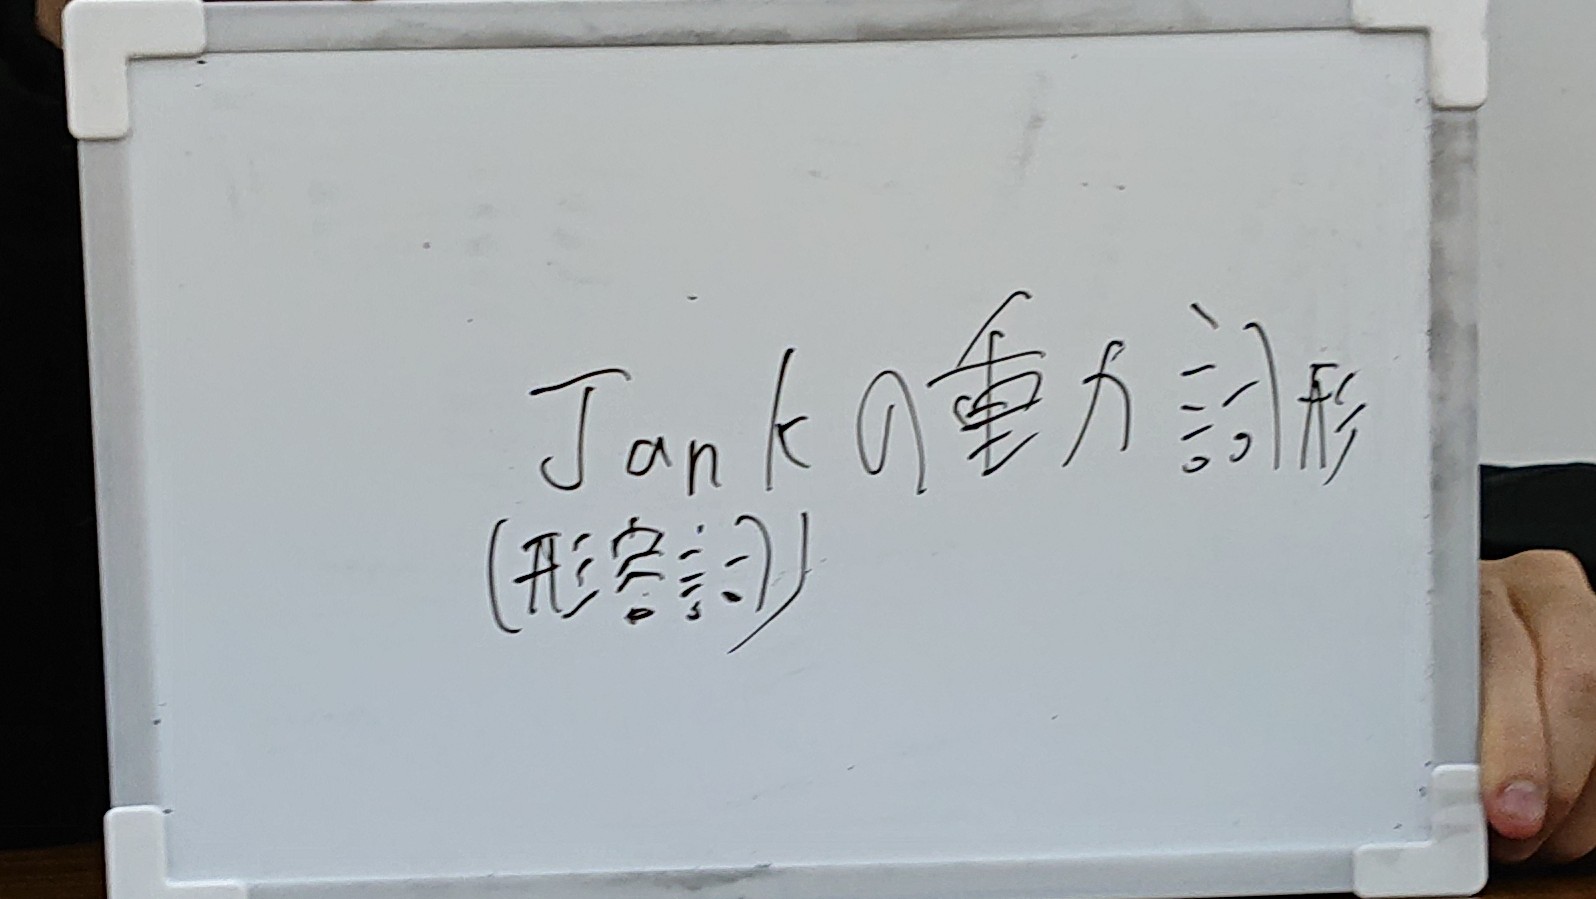 Jankの動詞形
(形容詞)